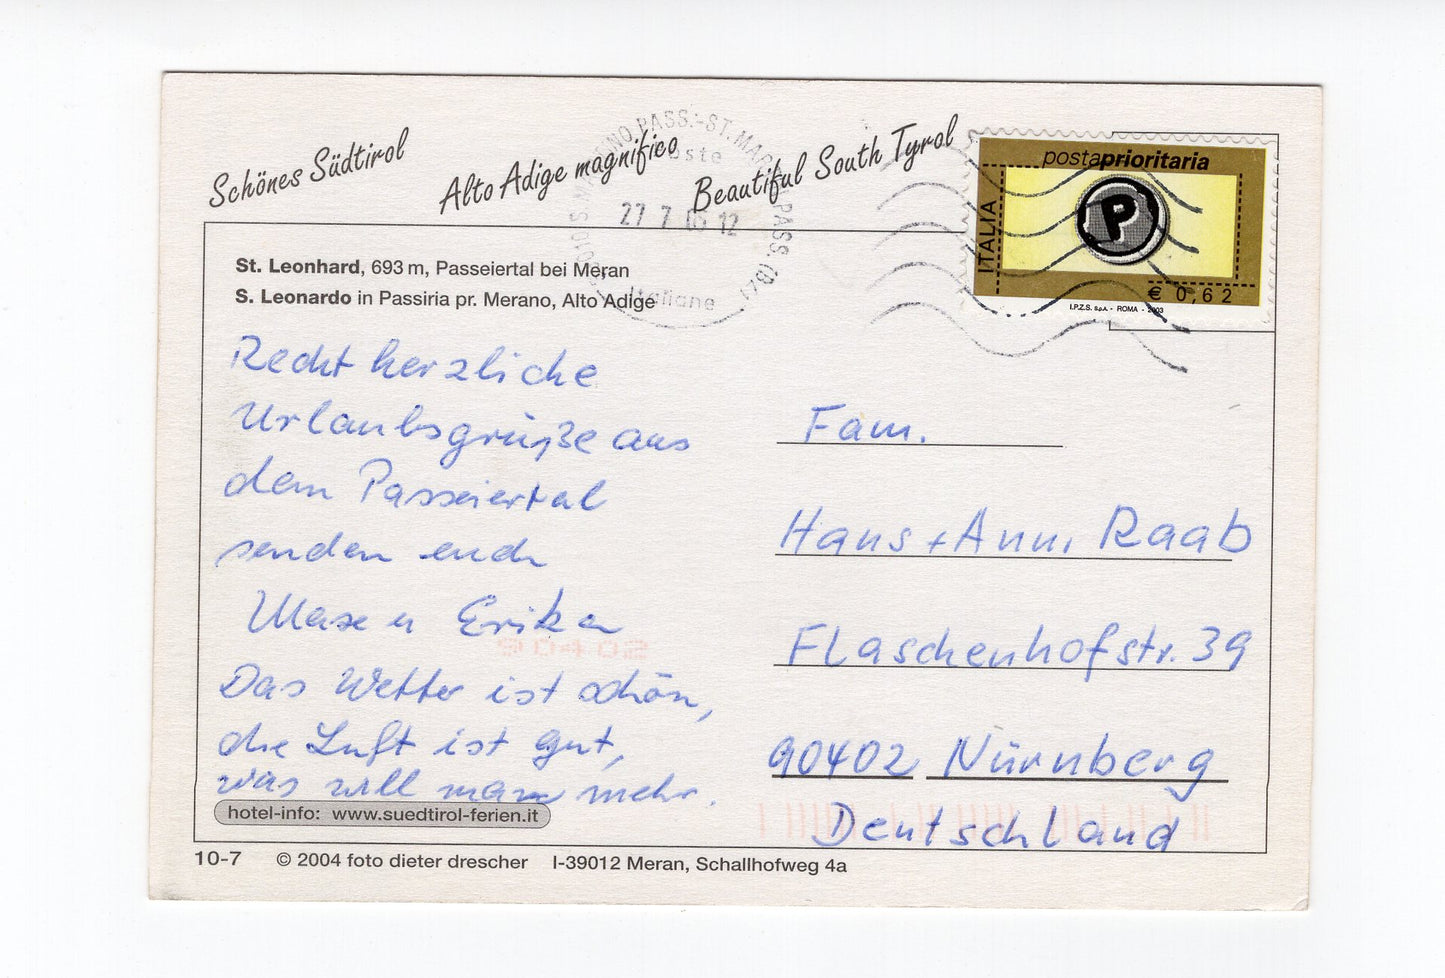 Schönes Südtirol
Alto Adige magnifico
Beautiful South Tyrol
PASS.-ST. PASS. (BZ)
27 7 12
Italiane
postaprioritaria
P
ITALIA
€ 0,62
I.P.Z.S. S.p.A. - ROMA - 2003
St. Leonhard, 693 m, Passeiertal bei Meran
S. Leonardo in Passiria pr. Merano, Alto Adige
Recht herzliche
Urlaubsgrüße aus
dem Passeiertal
senden euch
Erika
Das Wetter ist schön,
die Luft ist gut,
was will man mehr.
Fam.
Hans + Ann. Raab
Flaschenhofstr. 39
90402 Nürnberg
Deutschland
hotel-info: www.suedtirol-ferien.it
10-7 © 2004 foto dieter drescher I-39012 Meran, Schallhofweg 4a